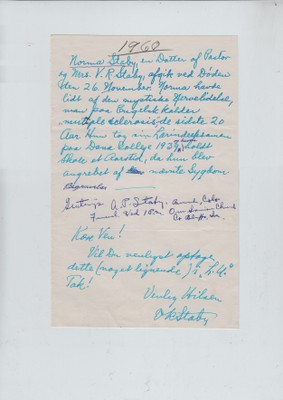 1960
Norma Staby, en Datter af Pastor
og Mrs. V. R. Staby, afgik ved Døden
den 26. November. Norma havde
lidt af den mystiske Nervelidelse,
man paa Engelsk kalder
multiple sclerosis de sidste 20
Aar Hun tog sin Lærindeeksamen
paa Dana College 193 holdt
Skole et Aarstid, da hun blev
angrebet af nævnte Sygdom.
Begravelse
A. P. Staby.
Kære Ven!
Vil De venligst optage
dette (noget lignende) i "L. U."
Tak!
Venlig Hilsen
V R Staby